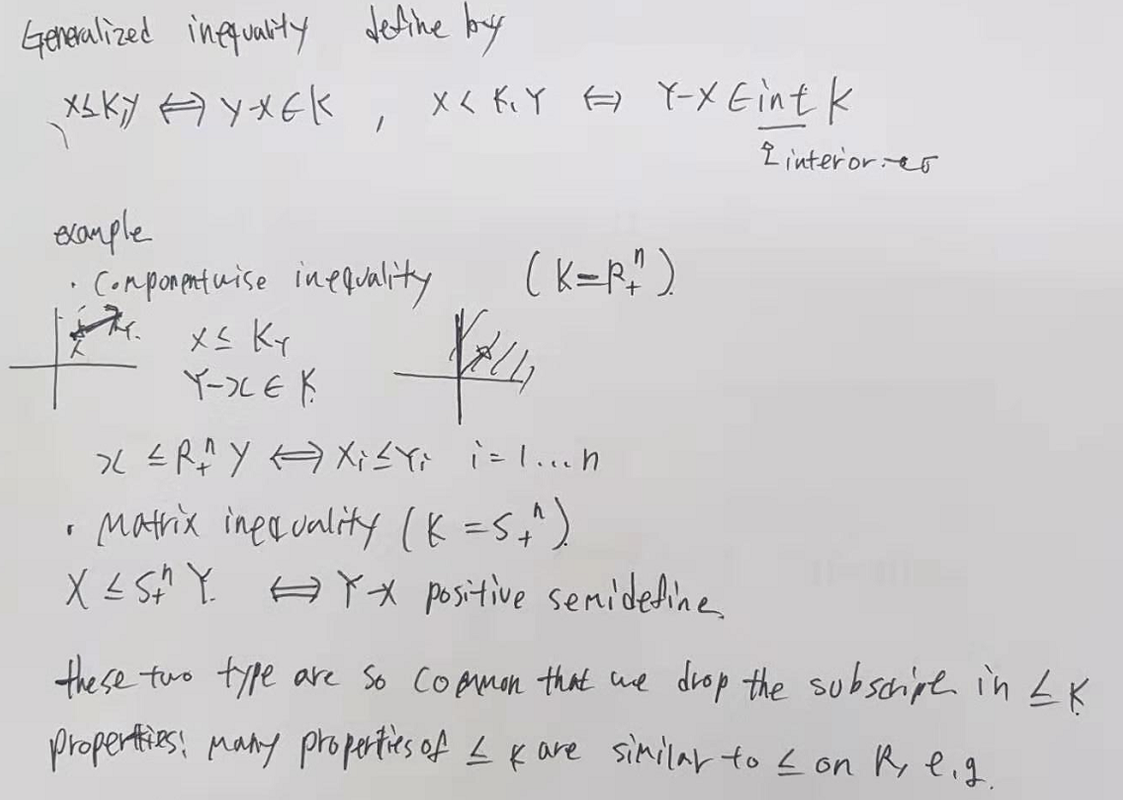 Generalized inequality define by
X≤Ky ⇔ Y-X∈K , X < K, Y ⇔ Y-X ∈ int K
interior
example
· Componentwise inequality (K=R₊ⁿ).
X ≤ Ky
Y-x ∈ K
x ≤ R₊ⁿ Y ⇔ Xi≤Yi i=1...n
· Matrix inequality (K=S₊ⁿ).
X ≤ S₊ⁿ Y. ⇔ Y-X positive semidefine.
these two type are so common that we drop the subscript in ≤K
properties: many properties of ≤K are similar to ≤ on R, e.g.